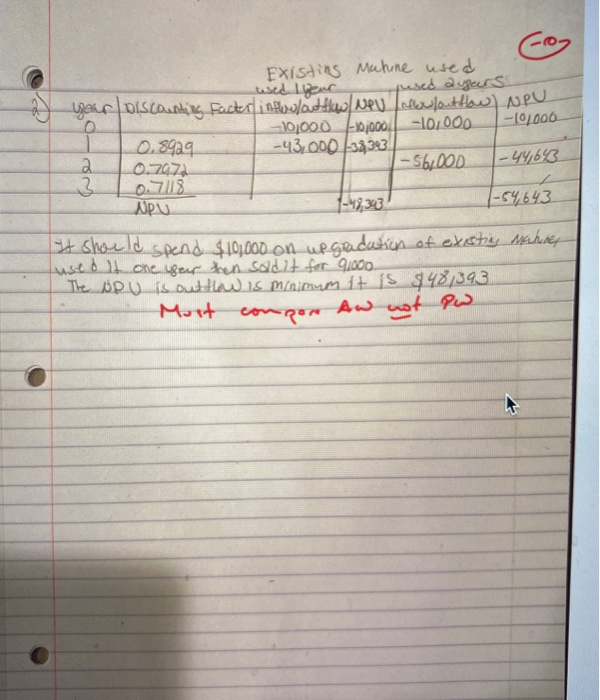 -10
Existing Mahine used
used 1 year used 2 years
2) year Discounting Factor inflow/outflow NPV inflow/outflow NPV
0 -10,000 -10,000 -10,000 -10,000
1 0.8929 -43,000 -38,393
2 0.7972 -56,000 -44,643
3 0.7118
NPV -48,393 -54,643
It should spend $10,000 on upgradation of existing Mahine,
used it one year then sold it for 9,000
The NPV is outflow is minimum it is $48,393
Must compare AW not PW